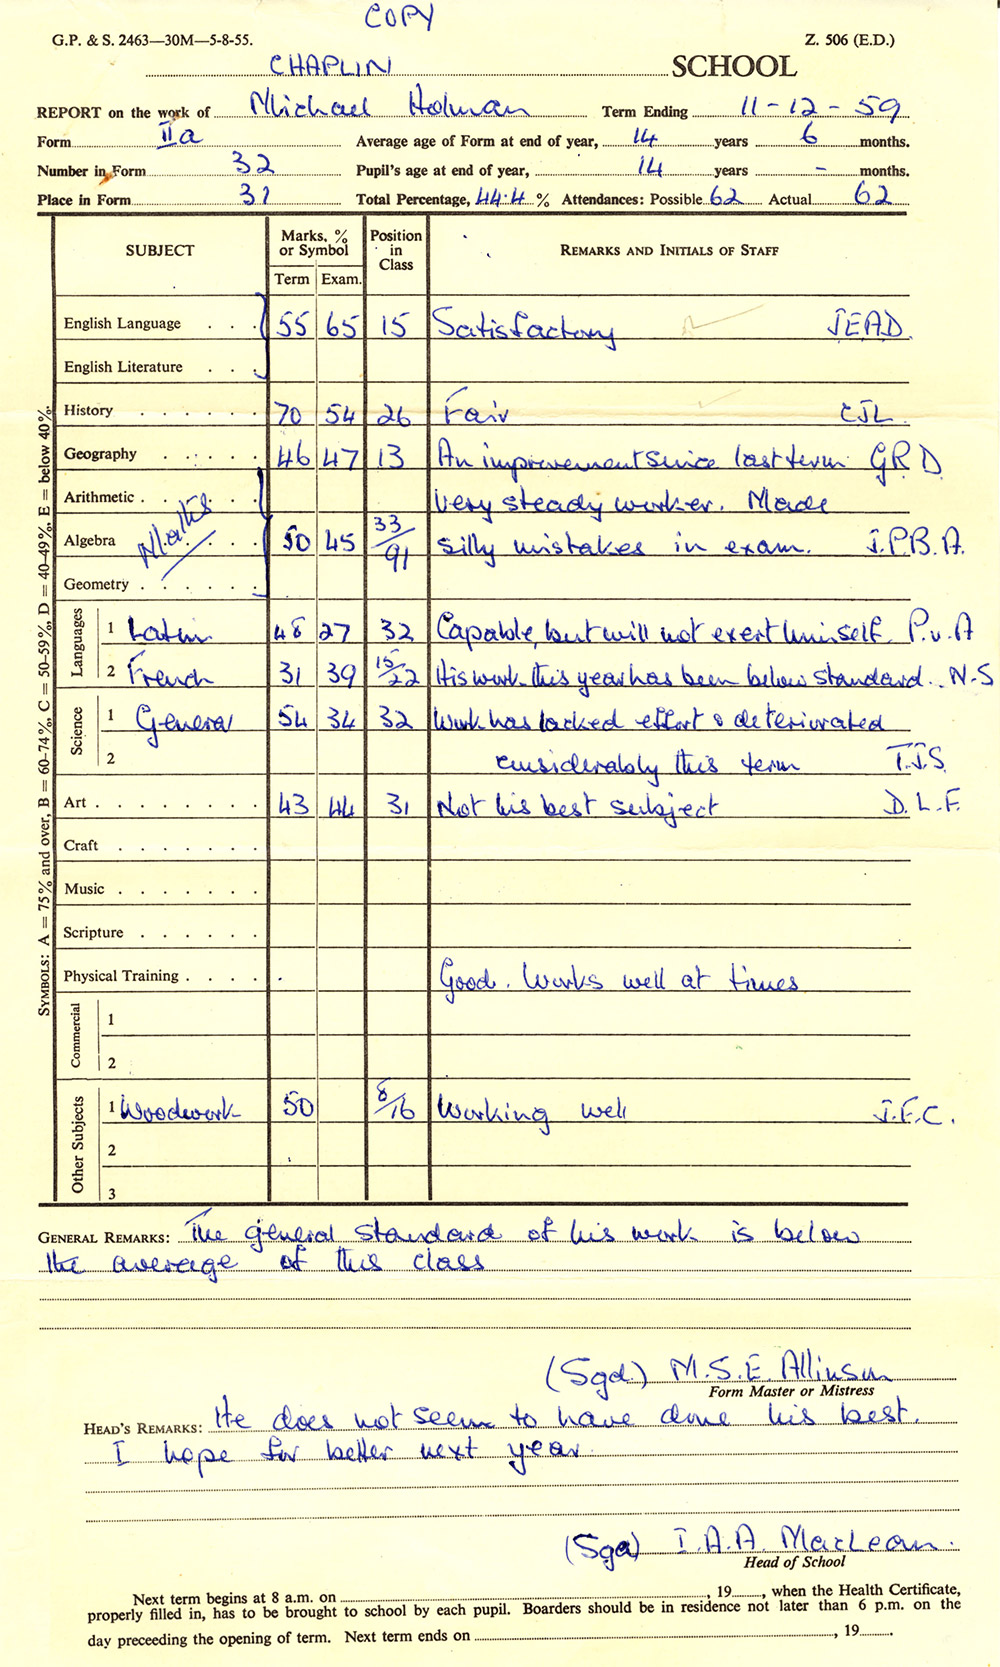 COPY
G.P. & S. 2463—30M—5-8-55. Z. 506 (E.D.)
CHAPLIN SCHOOL
REPORT on the work of Michael Holman Term Ending 11-12-59
Form IIa Average age of Form at end of year, 14 years 6 months.
Number in Form 32 Pupil's age at end of year, 14 years - months.
Place in Form 31 Total Percentage, 44.4 % Attendances: Possible 62 Actual 62
SUBJECT Marks, % or Symbol Position in Class REMARKS AND INITIALS OF STAFF
Term Exam.
English Language 55 65 15 Satisfactory J.E.A.D.
English Literature
History 70 54 26 Fair CJL
Geography 46 47 13 An improvement since last term G.R.D.
Arithmetic Very steady worker. Made
Algebra Maths 50 45 33/91 silly mistakes in exam. J.P.B.A.
Geometry
Languages
1 Latin 48 27 32 Capable, but will not exert himself. P.v.A
2 French 31 39 15/22 His work this year has been below standard. N.S
Science
1 General 54 34 32 Work has lacked effort & deteriorated
2 considerably this term T.J.S.
Art 43 44 31 Not his best subject D.L.F.
Craft
Music
Scripture
Physical Training Good. Works well at times
Commercial
1
2
Other Subjects
1 Woodwork 50 8/16 Working well J.F.C.
2
3
SYMBOLS: A = 75% and over, B = 60-74%, C = 50-59%, D = 40-49%, E = below 40%.
GENERAL REMARKS: The general standard of his work is below
the average of this class
(Sgd.) M.S.E. Allinson
Form Master or Mistress
HEAD'S REMARKS: He does not seem to have done his best.
I hope for better next year.
(Sgd) I.A.A. MacLean.
Head of School
Next term begins at 8 a.m. on , 19 , when the Health Certificate,
properly filled in, has to be brought to school by each pupil. Boarders should be in residence not later than 6 p.m. on the
day preceeding the opening of term. Next term ends on , 19 .